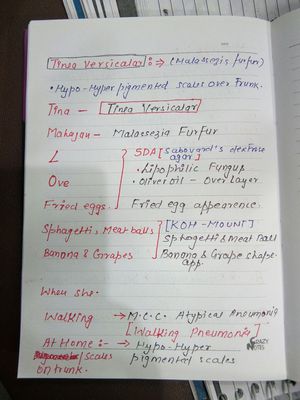 Tinea Versicalar :→ (Malassezia furfur)
• Hypo-Hyper pigmented scales over Trunk.
Tina — Tinea Versicalar
Mahajan — Malassezia Furfur
L SDA [Sabovard's dextrose agar]
• Lipophilic Fungus
Ove • Oliveroil - Over Layer
Fried eggs. Fried egg appearence.
Sphagetti & Meat balls [KOH - MOUNT]
Sphagetti & Meat Ball
Banana & Grapes Banana & Grape shape app.
When she.
Walking → M.C.C. Atypical Pneumonia
[Walking Pneumonia]
At Home :- → Hypo-Hyper
/Scales pigmental scales
on trunk.